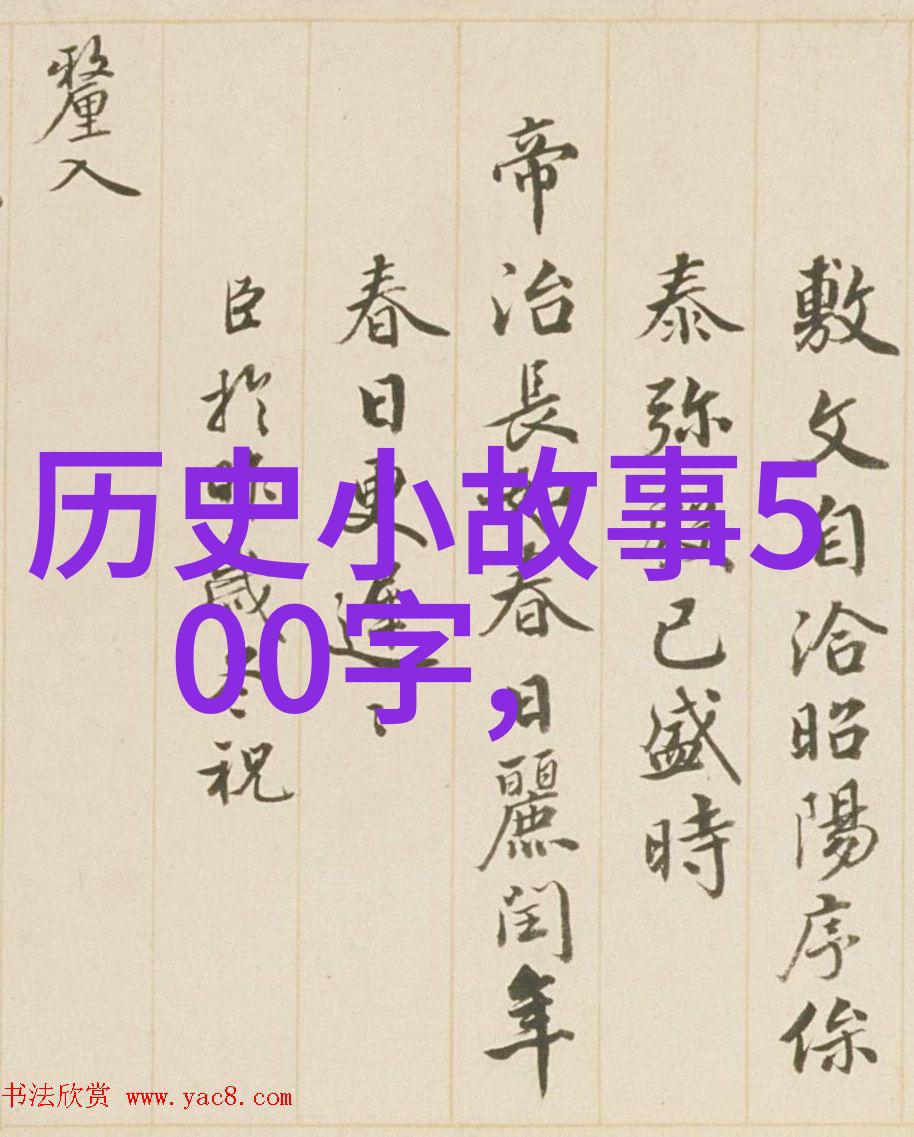 敷文自洽昭陽序條
泰弥已盛時
帝治長春日麗閏年
春日更遲
臣於昨歲冬祝
釐入
历史小故事5
00字，
书法欣赏 www.yac8.com